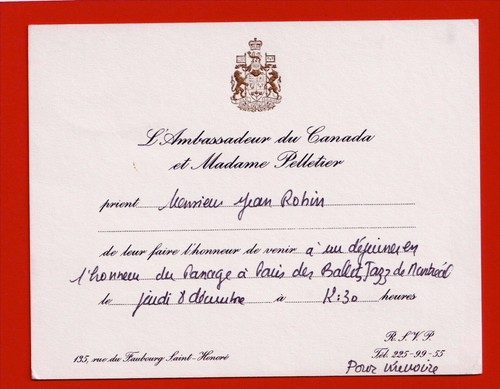 L'Ambassadeur du Canada
et Madame Pelletier
prient Monsieur Jean Robin
de leur faire l'honneur de venir à un déjeuner en
l'honneur du Passage à Paris des Ballets Jazz de Montréal
le jeudi 8 décembre à 12:30 heures
R.S.V.P.
135, rue du Faubourg Saint-Honoré Tél. 225-99-55
Pour mémoire